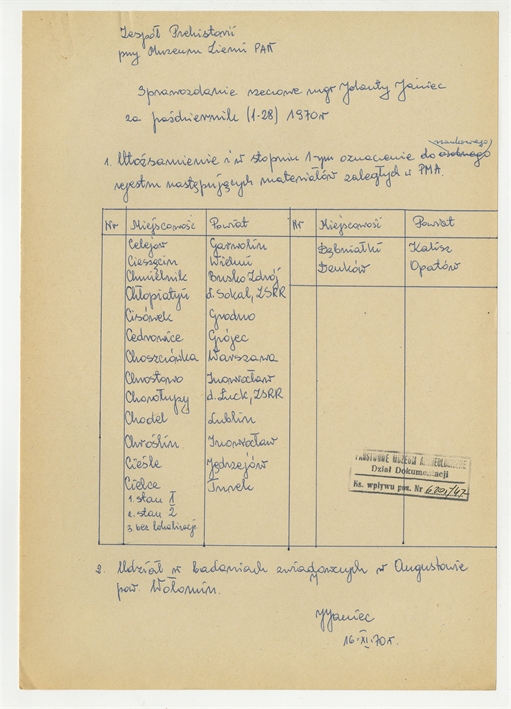 Zespół Prehistorii
przy Muzeum Ziemi PAN
Sprawozdanie rzeczowe mgr Jolanty Janiec
za październik (1-28) 1970 r
naukowego
1. Utożsamienie i w stopniu 1-ym oznaczenie do osobnego
rejestru następujących materiałów zaległych w PMA.
Nr Miejscowość Powiat Nr Miejscowość Powiat
Celejów Garwolin Dębniałki Kalisz
Cieszęcin Wieluń Denków Opatów
Chmielnik Busko Zdrój
Chłopiatyń d. Sokal, ZSRR
Cisówek Grodno
Cedrowice Grójec
Choszczówka Warszawa
Chrostowo Inowrocław
Chorołupy d. Łuck, ZSRR
Chodel Lublin
Chróślin Inowrocław
Cieśle Jędrzejów
Cielce Turek
1. stan 1
2. stan 2
3. bez lokalizacji
PAŃSTWOWE MUZEUM ARCHEOLOGICZNE
Dział Dokumentacji
Ks. wpływu poz. Nr 6201/47
2. Udział w badaniach zwiadowczych w Augustowie
pow. Wołomin.
JJaniec
16.XI.70 r.